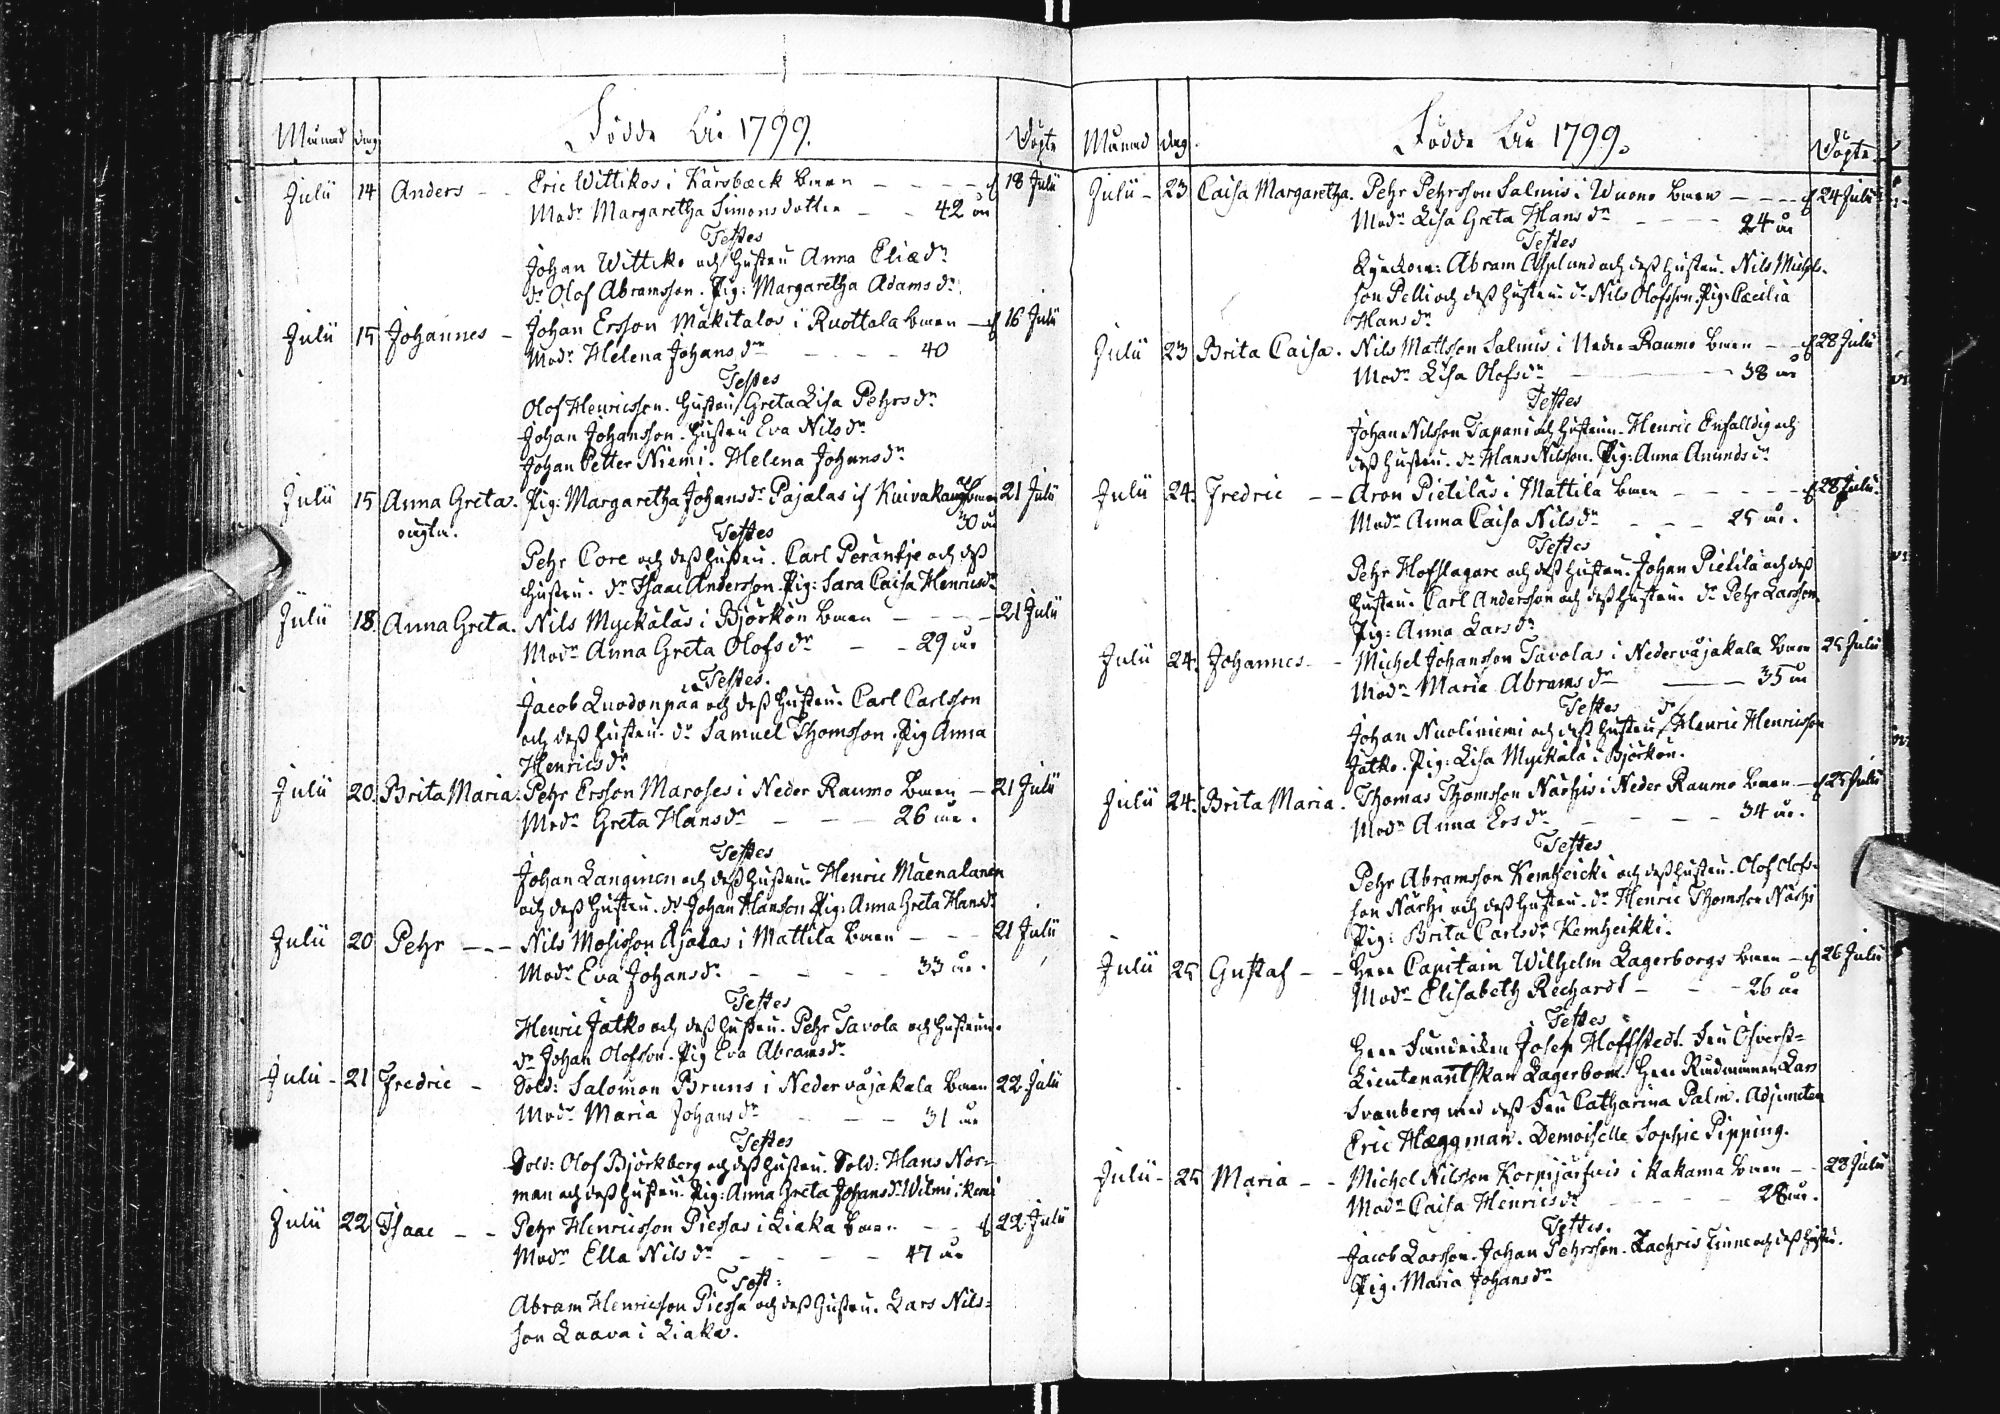 Månad dag Födde År 1799. Döpte
Julii 14 Anders - - Eric Wittikos i Karsbäck barn - - - - 18 Julii
Modr Margaretha Simonsdotter - - 42 år
Testes
Johan Wittiko och hustru Anna Eliædr
dr Olof Abramsson. Pig: Margaretha Adamsdr.
Julii 15 Johannes - Johan Ersson Mäkitalos i Ruottala barn - 16 Julii
Modr Helena Johansdr - - - - 40
Testes
Olof Henricsson. hustru Greta Lisa Pehrsdr
Johan Johansson. hustru Eva Nilsdr
Johan Petter Niemi. Helena Johansdr
Julii 15 Anna Greta. Pig: Margaretha Johansdr Pajalas if Kuivakangas barn 21 Julii
oägta. 30 år
Testes
Pehr Core och dess hustru. Carl Porantje och dess
hustru. dr Isaac Andersson. Pig: Sara Caisa Henricsdr
Julii 18. Anna Greta. Nils Myckälas i Björkön barn - - - - 21 Julii
Modr Anna Greta Olofsdr - - 29 år
Testes.
Jacob Luodonpää och dess hustru. Carl Carlsson
och dess hustru. dr Samuel Thomsson. Pig Anna
Henricsdr
Julii 20. Brita Maria. Pehr Ersson Maroses i Neder Raumo barn - 21 Julii
Modr Greta Hansdr - - - 26 år.
Testes
Johan Langinen och dess hustru. Henric Maenalanen
och dess hustru. dr Johan Hansson. Pig: Anna Greta Hansdr
Julii 20 Pehr - - - Nils Mosisson Ajalas i Mattila barn - - - 21 Julii
Modr Eva Johansdr. - - - - 33 år.
Testes
Henric Jatko och dess hustru. Pehr Tavola och hustrun.
dr Johan Olofsson. Pig Eva Abramsdr
Julii - 21 Fredric - Sold: Salomon Bruns i Neder vojakala barn 22 Julii
Modr Maria Johansdr - - - 31 år
Testes
Sold: Olof Björkberg och dess hustru. Sold: Hans Nor-
man och dess hustru. Pig: Anna Greta Johansdr Wilmi:
Julii 22 Isaac - - Pehr Henricsson Piessas i Liaka barn - - 22 Julii
Modr Ella Nilsdr - - - - 47 år
Test:
Abram Henricsson Piessa och dess hustru. Lars Nils-
son Laava i Liaka.
Månad dag. Födde År 1799. Döpte
Julii - 23 Caisa Margaretha. Pehr Pehrsson Salmis i Wuono barn - - - 24 Julii
Modr Lisa Greta Hansdr - - - - 24 år
Testes
Abram Asplund och dess hustru. Nils Michels-
son Pelli och dess hustru. dr Nils Olofsson. Pig: Cæcilia
Hansdr
Julii 23 Brita Caisa. Nils Mattsson Salmis i Neder Raumo barn - - 28 Julii
Modr Lisa Olofsdr - - 38 år
Testes
Johan Nilsson Tapani och hustrun. Henric Enfalldig och
dess hustru. dr Hans Nilsson. Pig: Anna Anundsdr
Julii 24. Fredric - - Aron Pietiläs i Mattila barn - - - - 28 Julii.
Modr Anna Caisa Nilsdr - - - 25 år.
Testes
Pehr Hofslagare och dess hustru. Johan Pietilä och dess
hustru. Carl Andersson och dess hustru. dr Pehr Larsson
Pig: Anna Larsdr
Julii 24. Johannes - - Michel Johansson Tavolas i Neder vojakala barn 25 Julii
Modr Maria Abramsdr - - 35 år
Testes
Johan Nuoliniemi och dess hustru dr Henric Henricsson
Jatko. Pig: Lisa Myckälä i Björkön.
Julii 24. Brita Maria. Thomas Thomsson Närhis i Neder Raumo barn - 25 Julii
Modr Anna Ersdr - - - - 34 år.
Testes
Pehr Abramsson Kemheicki och dess hustru. Olof Olofs-
son Närhi och dess hustru. dr Henric Thomsson Närhi
Pig: Brita Carlsdr Kemheikki.
Julii 25 Gustaf - - Herr Capitain Wilhelm Lagerborgs barn - 26 Julii
Modr Elisabeth Rechardt - - - 26 år
Testes
Herr Fændriken Josep Hoffstedt. Fru Öfverst-
Lieutenantskan Lagerbom. Herr Lars
Svanberg med dess Fru Catharina Palm. Adjuncten
Eric Hæggman. Demoiselle Sophie Pipping.
Julii - 25 Maria - - Michel Nilsson Korpijärfvis i Kakama barn - - 28 Julii
Modr Caisa Henricsdr - - - - 28 år.
Testes.
Jacob Larsson. Johan Pehrsson. Zachris Tinne och dess hustru.
Pig. Maria Johansdr